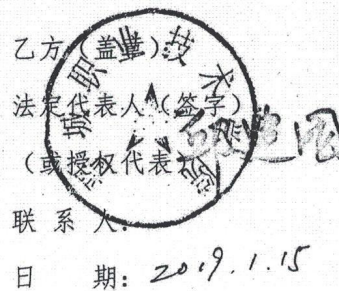 乙方（盖章）：
法定代表人（签字）
（或授权代表）
联系人：
日期：2019.1.15
职业技术